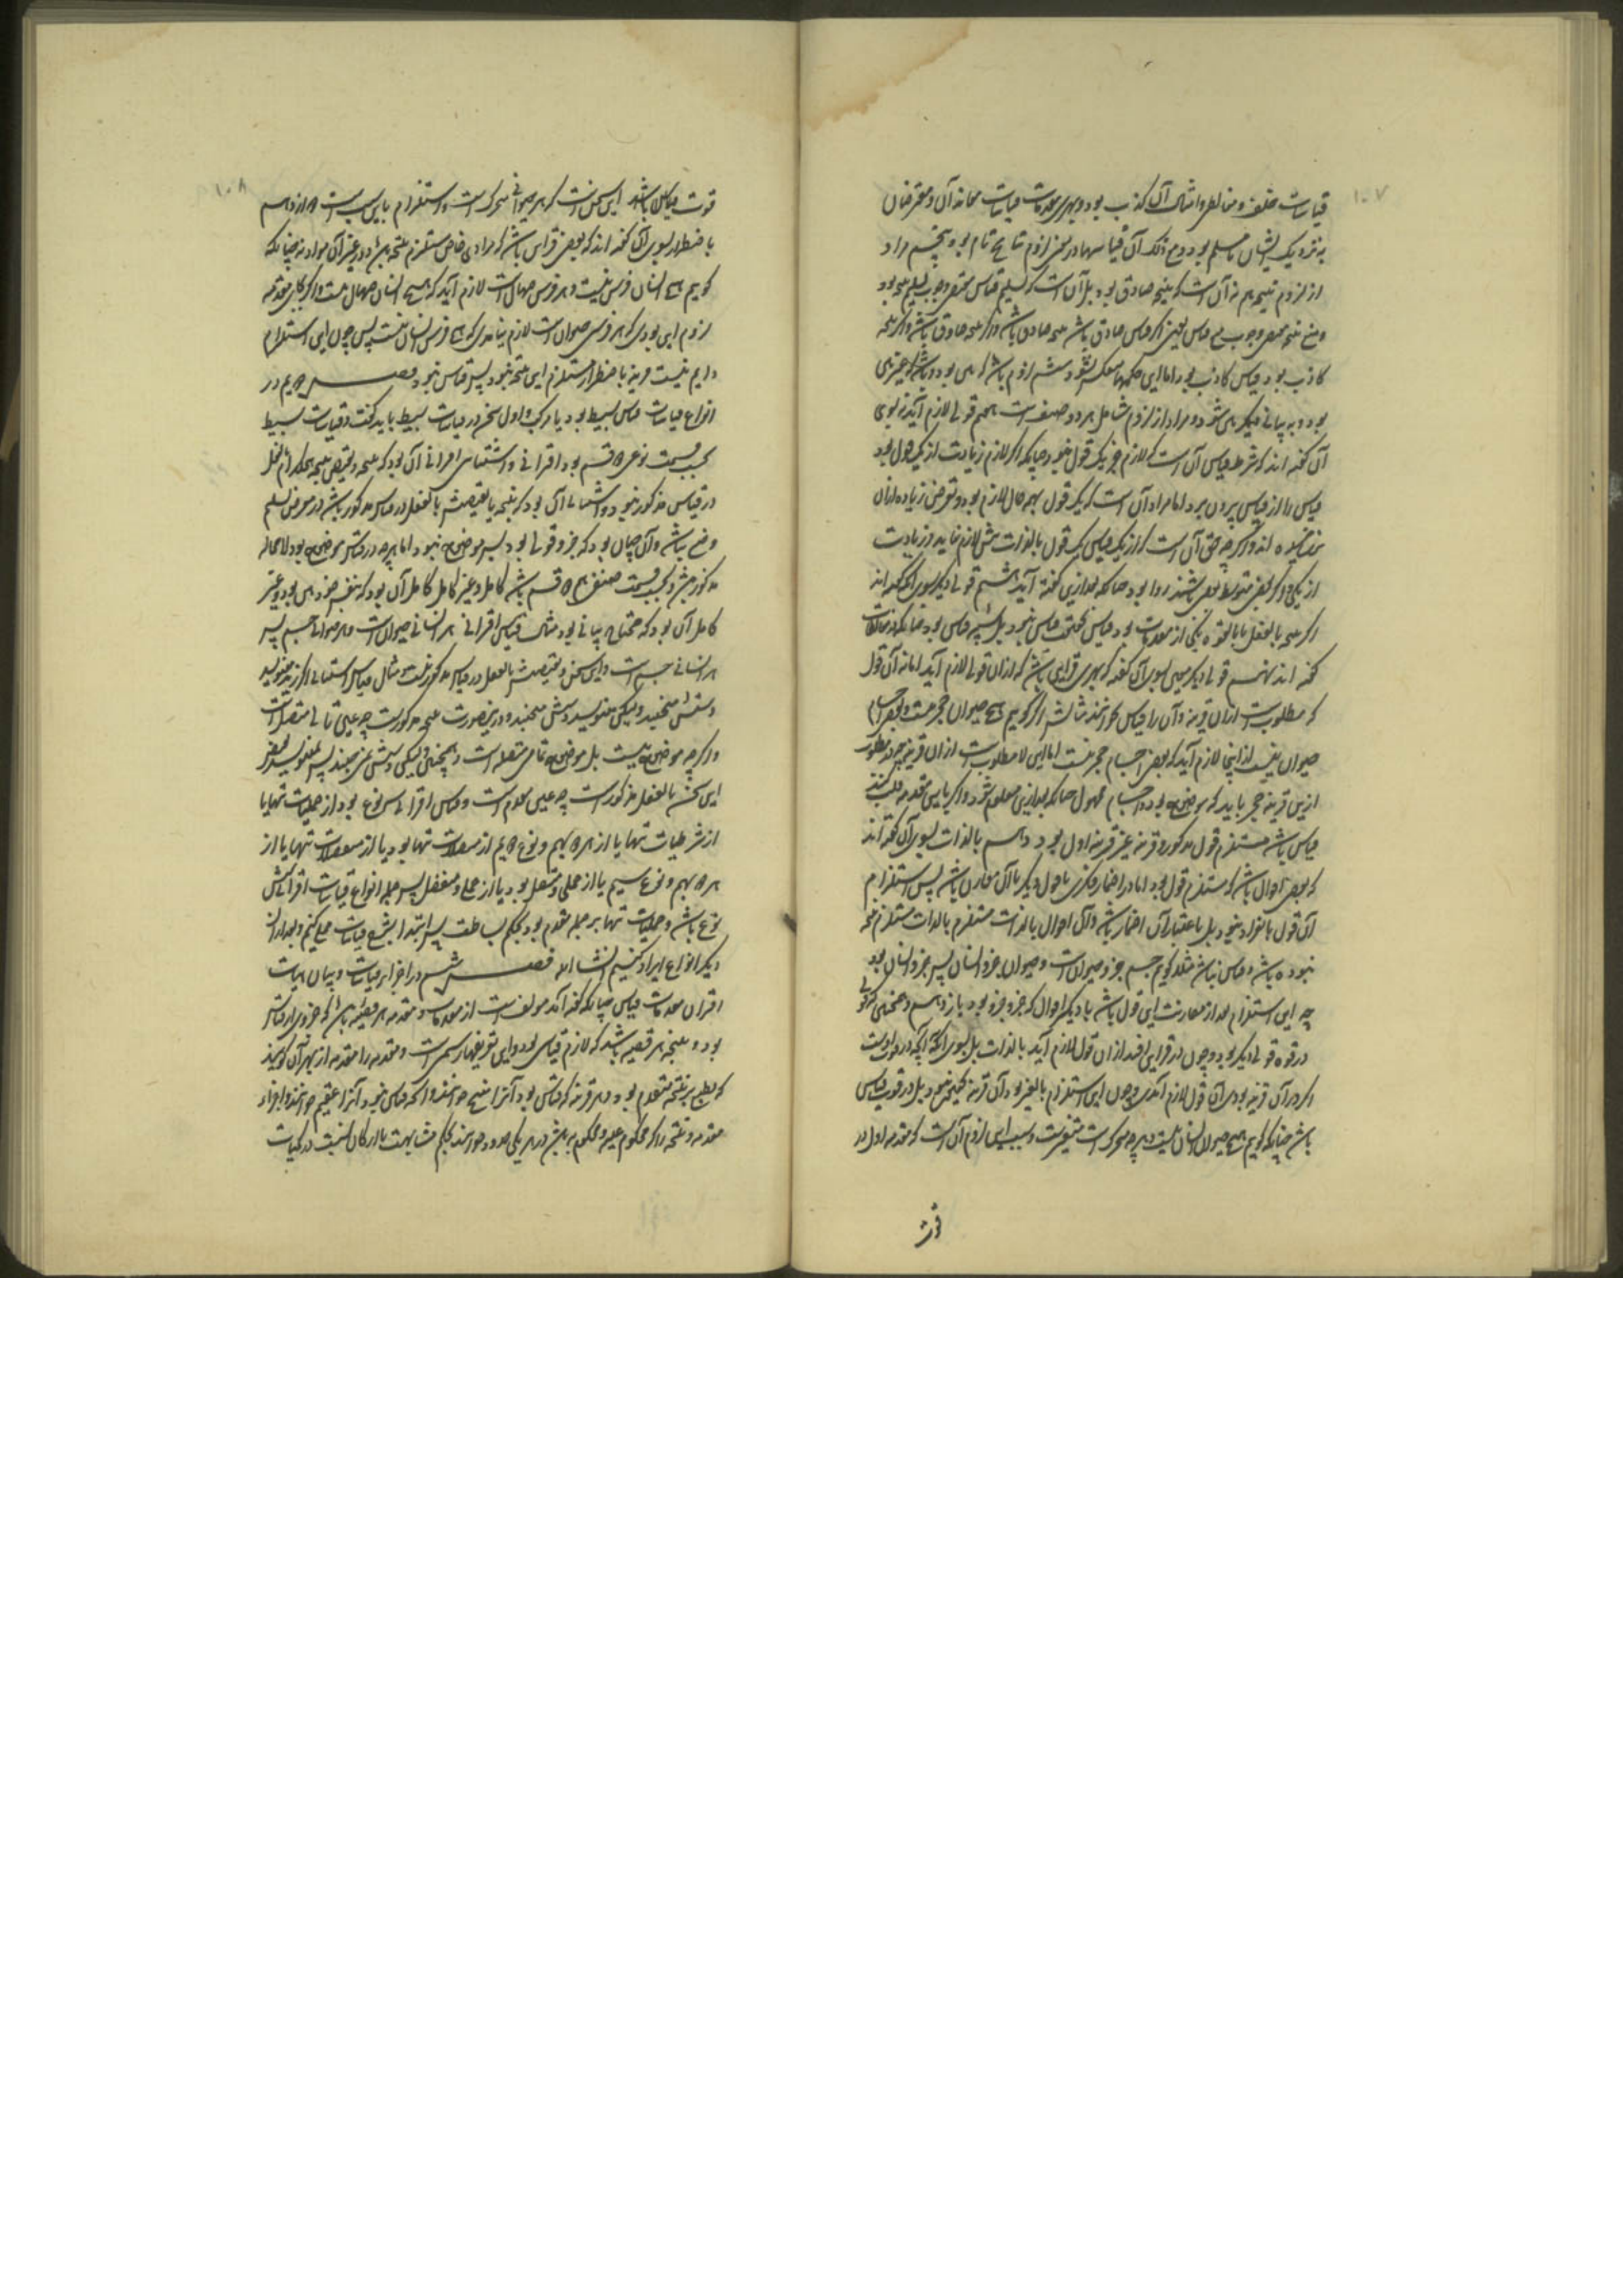 ۱۰۷
قیاسات خلف و مناظره و امثال آن کذب بود و بهری مقدمات قیاسات معاندان و معترضان
به نزدیک ایشان مسلم بود و مع ذلک آن قیاسها در معرض لزوم نتایج تام بود پنجم مراد
از لزوم نتیجه نه آنست که نتیجه صادق بود بل آنست که تسلیم قیاس مقتضی وجوب تسلیم نتیجه بود
و منع نتیجه مقتضی وجوب منع قیاس یعنی اگر قیاس صادق باشد نتیجه صادق باشد و اگر نتیجه
کاذب بود قیاس کاذب بود اما این حکمها منعکس نشود ششم لزوم باشد که بین بود و باشد که غیر بین
بود و به بیانی دیگر بین شود و مراد از لزوم شامل هر دو صنف است هفتم قولی لازم آید نه
آن گفته اند که شرط قیاس آن است که لازم جز یک قول نبود چنانکه اگر لازم زیادت از یک قول بود
قیاس را از قیاسی بیرون برد اما مراد آن است که یک قول بهر حال لازم بود و تعرض زیاده ازان
ننموده اند و اگر چه حق آن است که از یک قیاس یک قول بالذات بیش لازم نیاید و زیادت
از یکی و اگر بعضی بتوسط بعضی باشند روا بود چنانکه بعد ازین گفته آید هشتم قولی دیگر
اگر نتیجه بالفعل یا بالقوه یکی از مقدمات بود قیاس بحقیقت قیاس نبود بل شبیه قیاس بود چنانکه در مغالطات
گفته اند نهم قولی دیگر معین بسوی آن گفته که بهری قراین باشد که ازان قولی لازم آید اما نه آن قول
که مطلوب است ازان قرینه و آن را قیاس نخوانند مثالش اگر گوییم هیچ حیوان حجر نیست و بعضی اجسام
حیوان نیست ازینجا لازم آید که بعضی اجسام حجر نیست اما این لا مطلوب است ازان قرینه چه مطلوب
ازین قرینه حجر باید که موضوع بود و اجسام محمول چنانکه بعد ازین معلوم شود و اگر بایین مقدمه قلب کنند
قیاس باشد مستلزم قول مذکور و قرینه غیر قرینه اول بود دهم بالذات بسوی آن گفته اند
که بعضی اقوال باشد که مستلزم قول بود اما در اضمار و فکری یا قول دیگر با آن مقارن باشد پس استلزام
آن قول بانفراد نبود بل باعتبار آن اضمار باشد و آن اقوال بالذات مستلزم بالذات مستلزم نتیجه
نبوده باشد و قیاس نباشد مثلا گوییم جسم جزو حیوان است و حیوان جزو انسان پس جزو انسان بود
چه این استلزام بعد از مقارنت این قول باشد با دیگر اقوال که جزو جزو بود یازدهم و همچنین گر قولی
در قوه قولی دیگر بود و چون در قراین افتد ازان قول لازم آید بالذات بل بسوی آنکه آنچه در قوت اوست
اگر در آن قرینه بودی آن قول لازم آمدی و چون این استلزام بالغیر بود آن قرینه بحقیقت نبود بل در قوت قیاس
باشد چنانکه گوییم هیچ حیوان انسان نیست و هر چه متحرک است متغیرست و سبب این لزوم آن است که مقدمه اول در
قوت
۱۰۸
قوت قیاس باشد این سخن است که هر حیوانی متحرک است و استلزام باین سبب است دوازدهم
باضطرار بسوی آن گفته اند که بعضی قراین باشد که در مادی خاص مستلزم نتیجه باشد و در غیر آن مواد نه چنانکه
گوییم هیچ انسان فرس نیست و هر فرس صهال است لازم آید که هیچ انسان صهال نیست و اگر بجای مقدمه
دوم این بودی که هر فرسی حیوان است لازم نیامدی که هیچ فرس انسان نیست پس چون این استلزام
دایم نیست قرینه باضطرار مستلزم این نتیجه نبود پس قیاس نبود فصل دویم در
انواع قیاسات قیاس بسیط بود یا مرکب و اول سخن در قیاسات بسیط باید گفت و قیاسات بسیط
بحسب قسمت نوعی دو قسم بود اقترانی و استثنائی اقترانی آن بود که نتیجه و نقیض نتیجه هیچکدام بفعل
در قیاس مذکور نبود و استثنائی آن بود که نتیجه یا نقیضش بالفعل در قیاس مذکور باشد و در معرض تسلیم
وضع باشد و آن چنان بود که جزو قولی بود پس موضوع نبود اما هر چه در قیاس موضوع بود لا محاله
مذکور باشد و بحسب قسمت صنفی هم دو قسم باشد کامل و غیر کامل کامل آن بود که بنفس خود بین بود و غیر
کامل آن بود که محتاج بیانی بود مثال قیاس اقترانی هر انسانی حیوان است و هر حیوانی جسم پس
هر انسانی جسم است و این سخن و نقیضش بالفعل در قیاس مذکور نیست و مثال قیاس استثنائی اگر زید می نویسد
دستش می جنبد و لیکن می نویسد دستش می جنبد و درین صورت نتیجه مذکورست چه عین تالی متصله است
و اگر چه موضوع نیست بل موضوع تمامی متصله است و همچنین و لیکن دستش نمی جنبد پس نمی نویسد نقیض
این سخن بالفعل مذکورست چه عین مقدم است و قیاس اقترانی سه نوع بود از حملیات تنها یا
از شرطیات تنها یا از هر دو بهم و نوع دویم از متصلات تنها بود یا از منفصلات تنها یا از
هر دو بهم و نوع سیم یا از حملی و متصل بود یا از حملی و منفصل پس جمله انواع قیاسات اقترانی شش
نوع باشد و حملیات تنها بر جمله مقدم بود بحکم بساطت پس ابتدا بشرح قیاسات حملی کنیم و بعد ازان
دیگر انواع ایراد کنیم انشاء الله فصل در اجزای قیاسات و بیان هیئت
اقتران مقدمات قیاس چنانکه گفته آمد مولف است از مقدمات و مقدمه هر قضیه باشد که جزو برای قیاس
بود و نتیجه هر قضیه باشد که لازم قیاس بود و این تعریفها رسمی است و مقدمه را مقدمه از بهر آن گویند
که بطبع بر نتیجه متقدم بود و هر قرینه که قیاس بود آنرا منتج خوانند و آنکه قیاس نبود آنرا عقیم خوانند و اجزاء
مقدمه و نتیجه را که محکوم علیه و محکوم به باشد در هر یکی حدود خوانند بحکم مشابهت با ارکان نسبت در کمیات